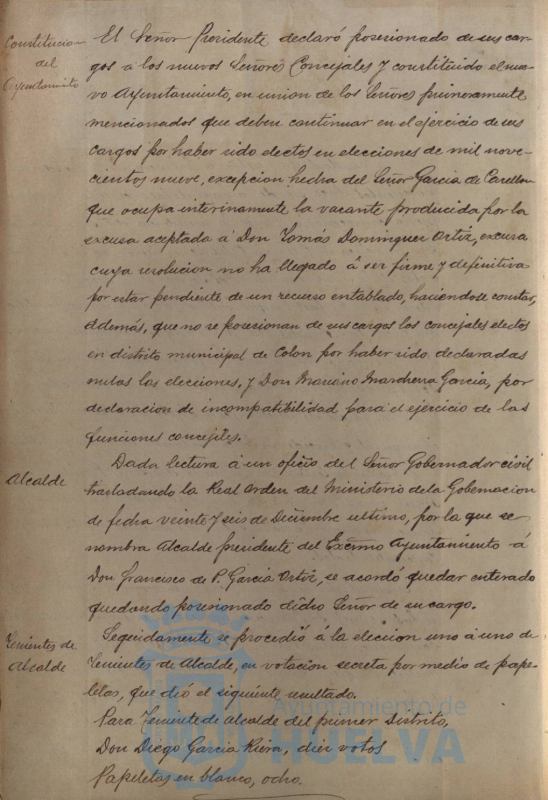 Constitucion
del
Ayuntamito
El Señor Presidente declaró posesionado de sus car-
gos á los nuevos Señores Concejales y constituido el nue-
vo Ayuntamiento, en union de los Señores primeramente
mencionados que deben continuar en el ejercicio de sus
cargos por haber sido electos en elecciones de mil nove-
cientos nueve, excepcion hecha del Señor Garcia de
que ocupa interinamente la vacante producida por la
excusa aceptada á Don Tomás Dominguez Ortiz, excusa
cuya resolucion no ha llegado á ser firme y definitiva
por estar pendiente de un recurso entablado, haciendose constar,
además, que no se posesionan de sus cargos los concejales electos
en distrito municipal de Colon por haber sido declaradas
nulas las elecciones, y Don Mariano Marchena Garcia, por
declaracion de incompatibilidad para el ejercicio de las
funciones concejiles.
Alcalde
Dada lectura á un oficio del Señor Gobernador civil
trasladando la Real Orden del Ministerio de la Gobernacion
de fecha veinte y seis de Diciembre ultimo, por la que se
nombra Alcalde presidente del Excmo Ayuntamiento á
Don Francisco de P. Garcia Ortiz, se acordó quedar enterado
quedando posesionado dicho Señor de su cargo.
Tenientes de
Alcalde
Seguidamente se procedió á la eleccion uno á uno de
Tenientes de Alcalde, en votacion secreta por medio de pape-
letas, que dió el siguiente resultado.
Para Teniente de Alcalde del primer Distrito,
Don Diego Garcia Riera, diez votos
Papeletas en blanco, ocho.
Ayuntamiento de
HUELVA